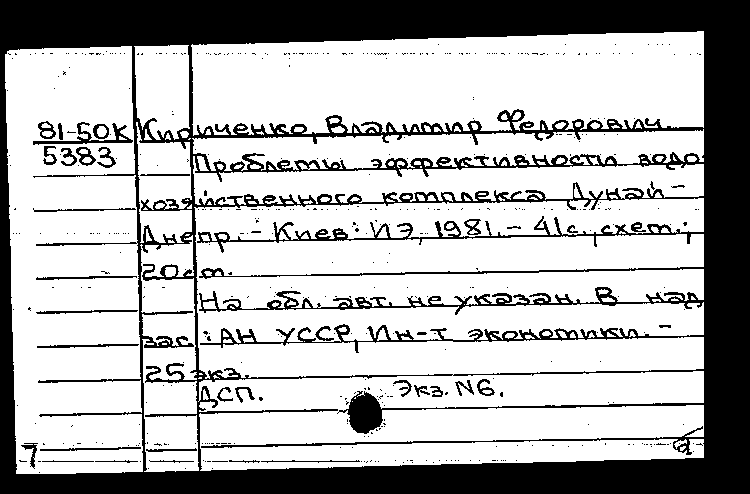 81-50К Кириченко, Владимир Федорович.
5383 Проблемы эффективности водо-
хозяйственного комплекса Дунай -
Днепр. - Киев: ИЭ, 1981. - 41с., схем.;
20см.
На обл. авт. не указан. В над
заг.: АН УССР, Ин-т экономики. -
25 экз.
ДСП. Экз. N6.
7